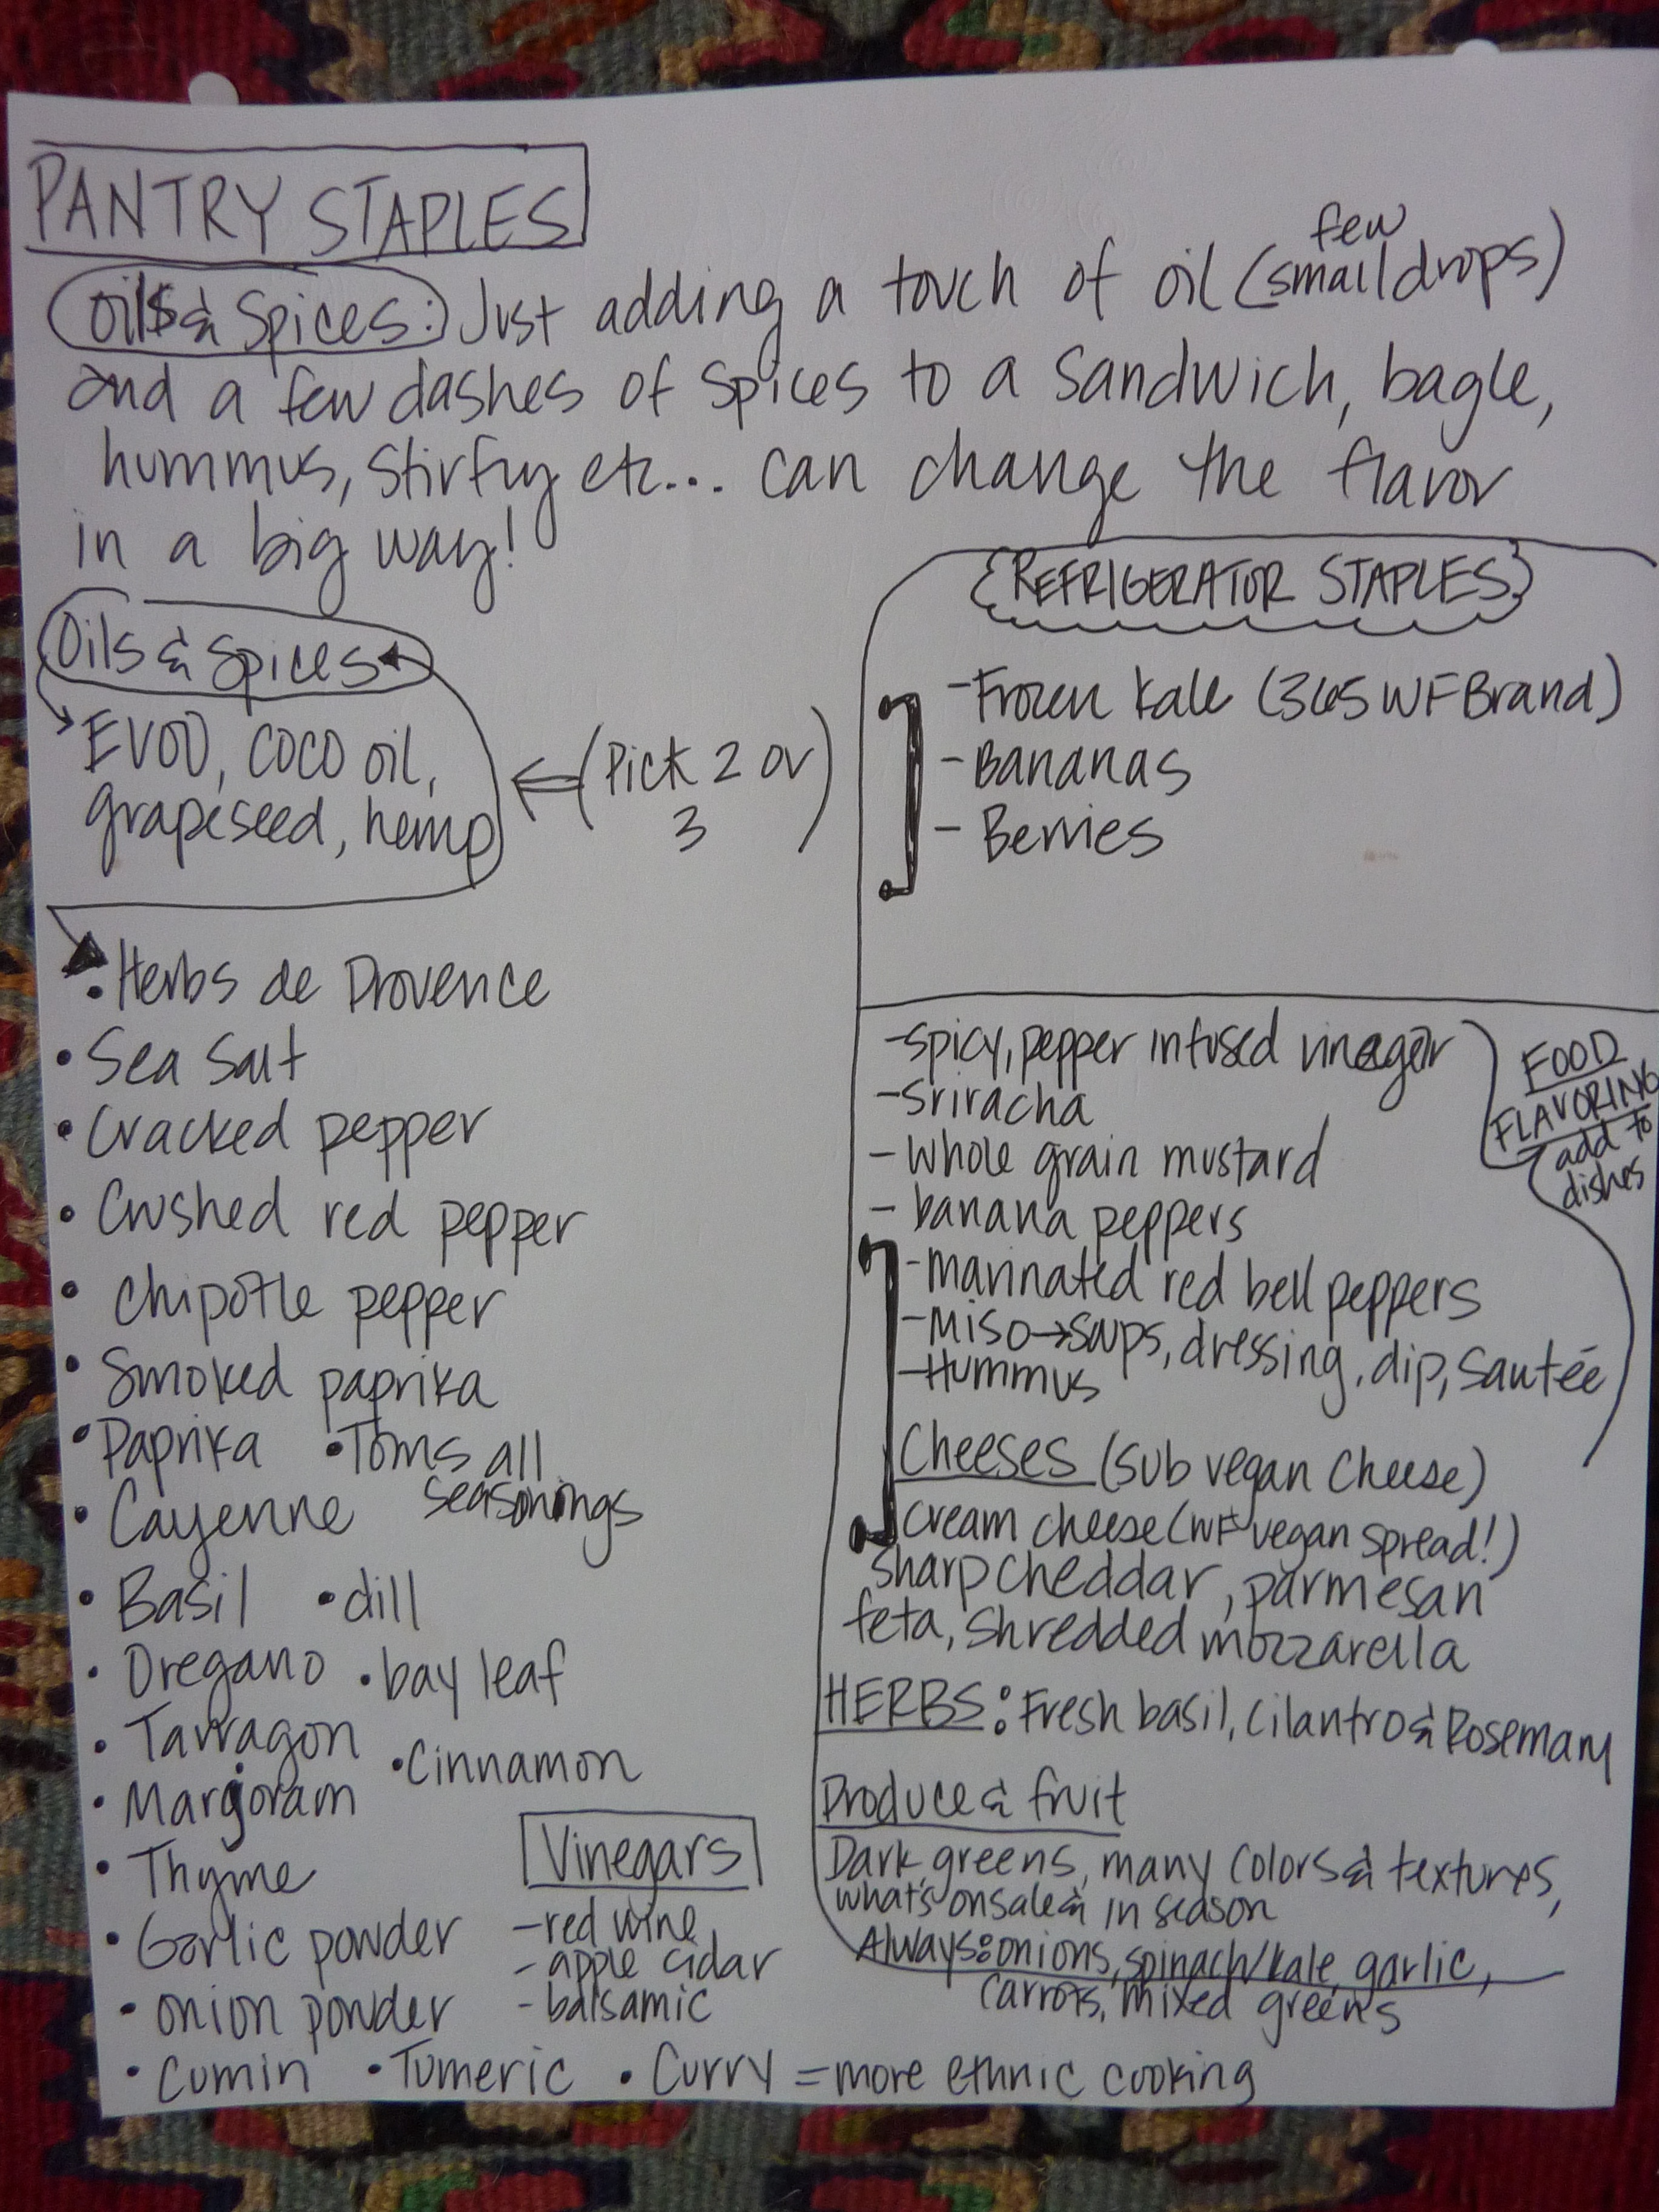 PANTRY STAPLES
Oils & Spices: Just adding a touch of oil (few small drops)
and a few dashes of spices to a sandwich, bagle,
hummus, stirfry etc... can change the flavor
in a big way!
Oils & Spices
EVOO, coco oil,
grapeseed, hemp
(Pick 2 or
3)
• Herbs de Provence
• Sea Salt
• Cracked pepper
• Crushed red pepper
• Chipotle pepper
• Smoked paprika
• Paprika • Toms all
seasonings
• Cayenne
• Basil • dill
• Oregano • bay leaf
• Tarragon
• Cinnamon
• Marjoram
• Thyme
• Garlic powder
• onion powder
• Cumin • Tumeric • Curry = more ethnic cooking
Vinegars
- red wine
- apple cidar
- balsamic
REFRIGERATOR STAPLES
- Frozen kale (365 WF Brand)
- Bananas
- Berries
- Spicy, pepper infused vinegar
- Sriracha
- Whole grain mustard
- banana peppers
- marinated red bell peppers
- Miso → soups, dressing, dip, sautée
- Hummus
FOOD
FLAVORING
add to
dishes
Cheeses (sub vegan cheese)
cream cheese (WF vegan spread!)
sharp cheddar, parmesan
feta, shredded mozzarella
HERBS: Fresh basil, cilantro & Rosemary
Produce & fruit
Dark greens, many colors & textures,
what's on sale & in season
Always: onions, spinach/kale, garlic,
carrots, mixed greens